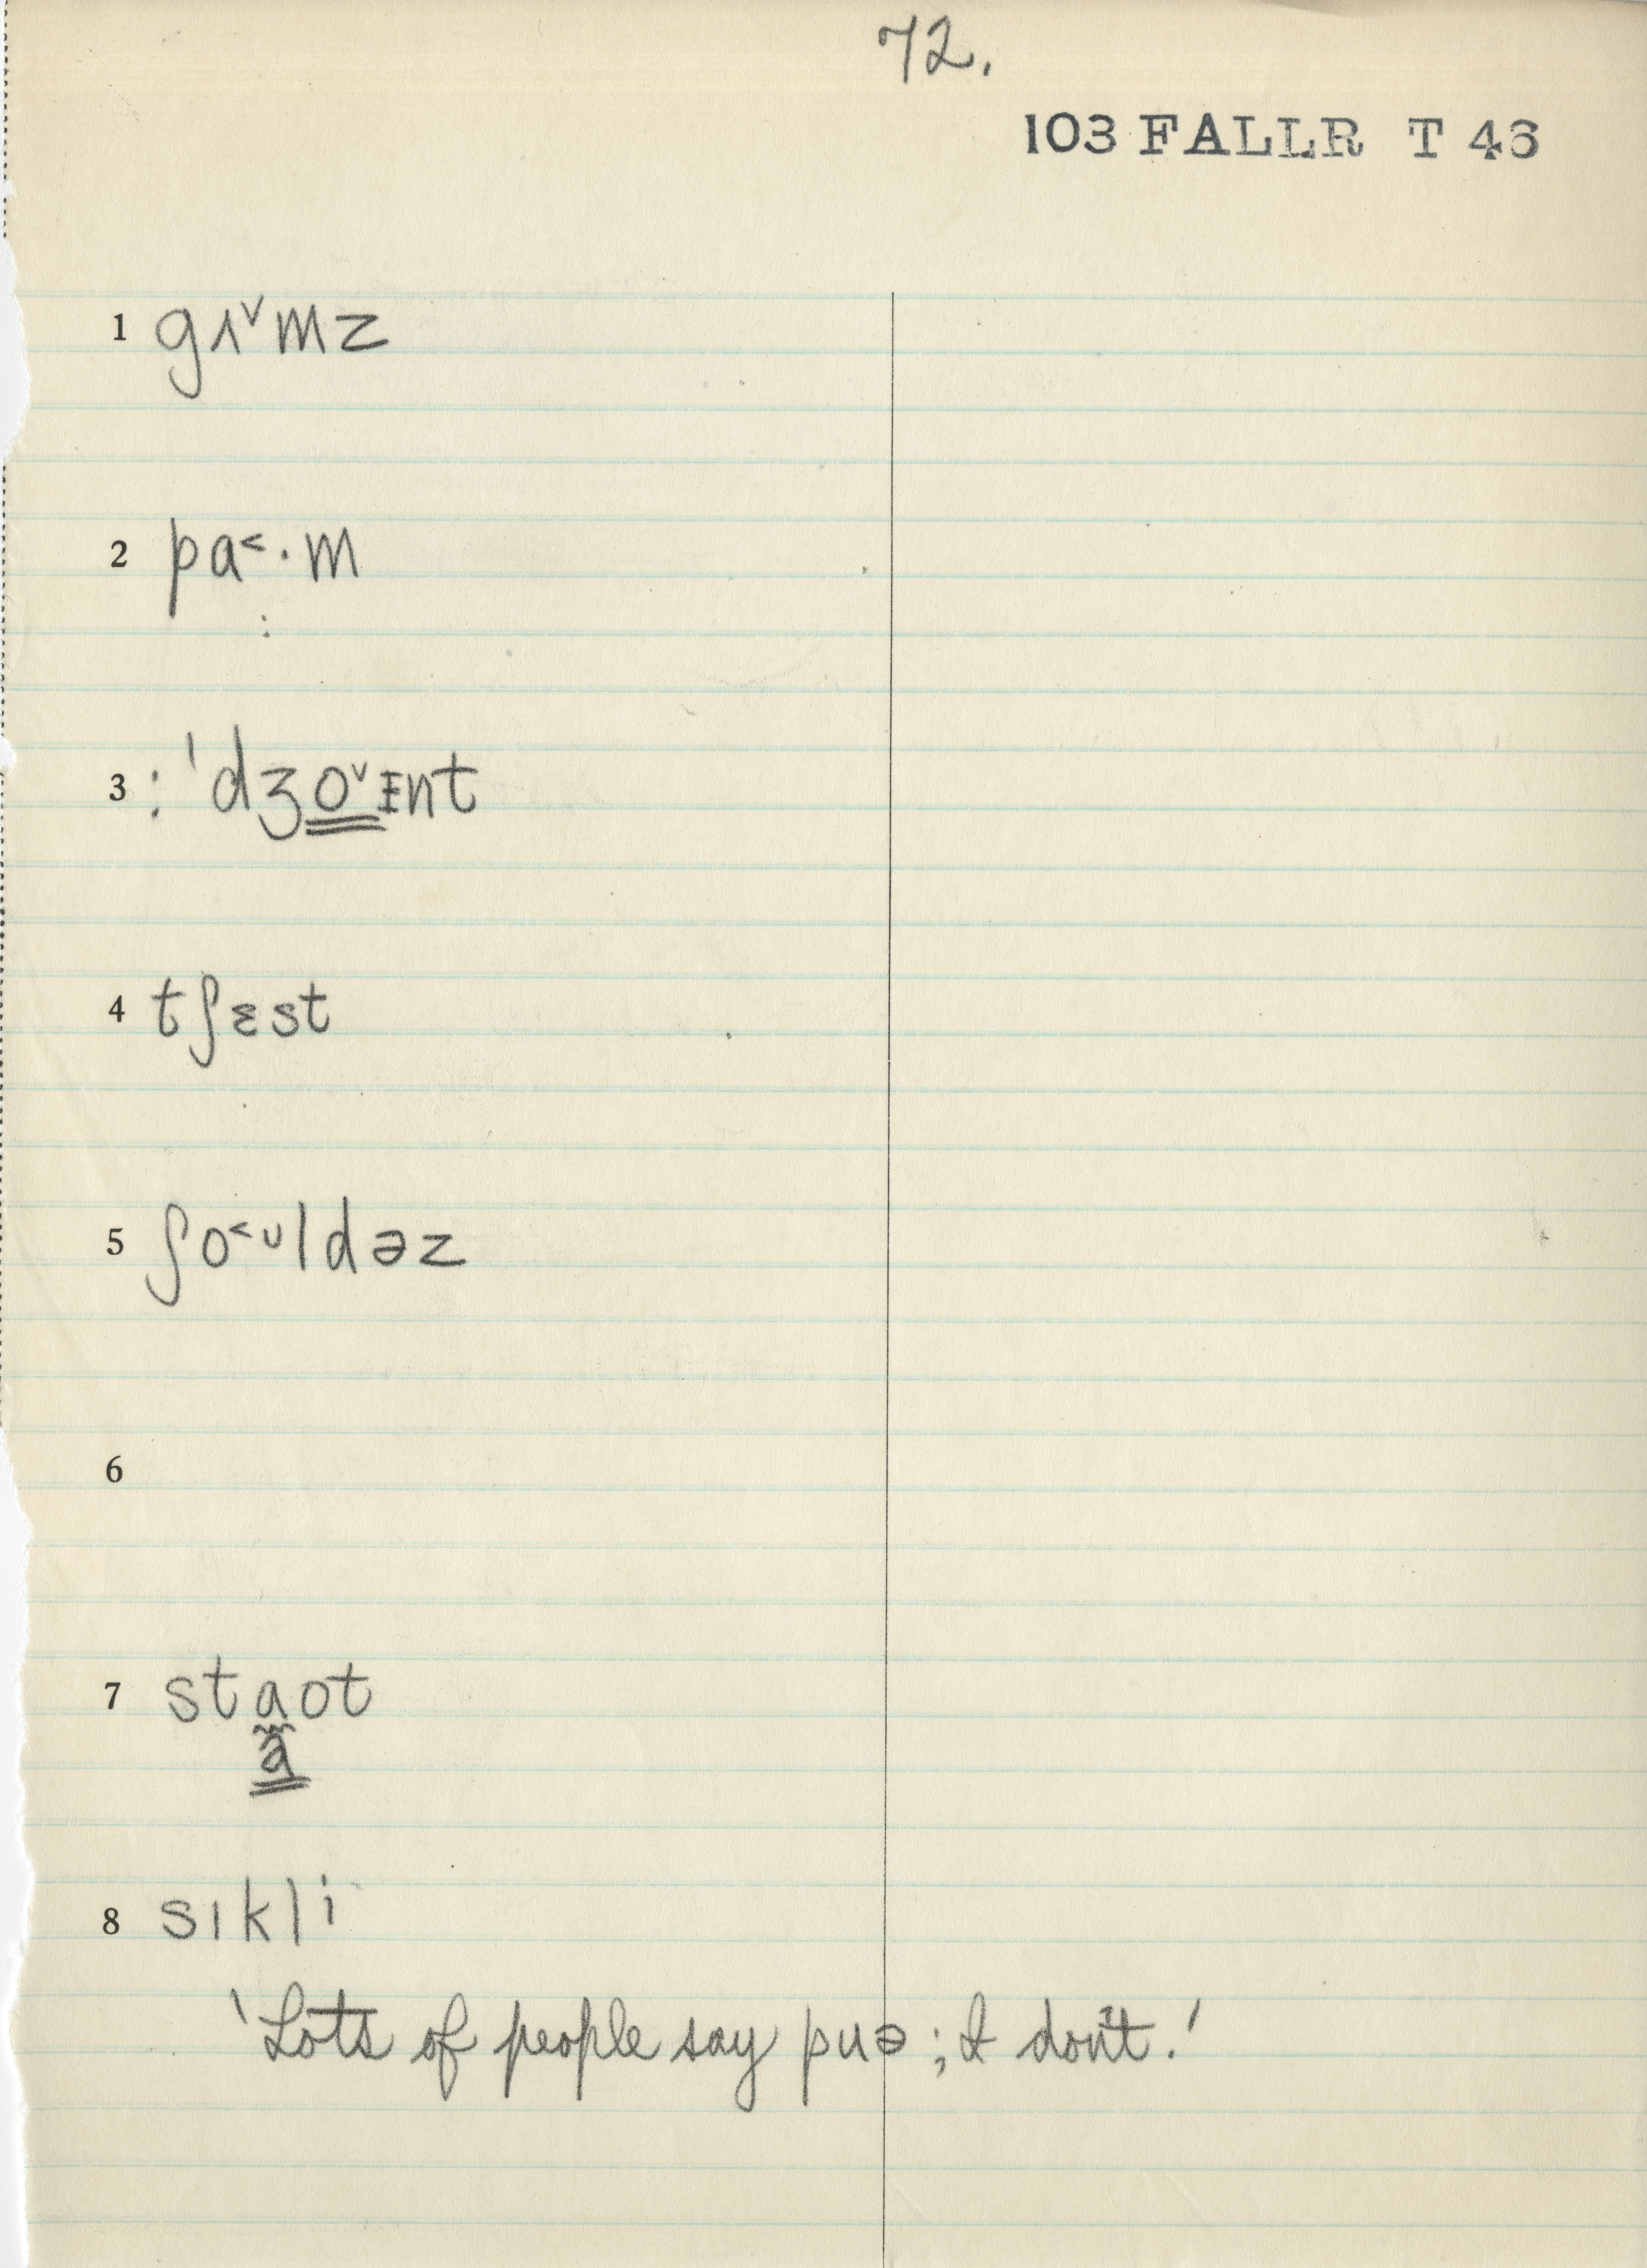 72.
103 FALLR T 46
1 gʌ˅mz
2 pɑ˂·m
:
3 : ˈdʒo˅ɪnt
4 tʃɛst
5 ʃo˂ᴜldəz
6
7 staot
a
8 sıkli
'Lots of people say puə; I don't.'